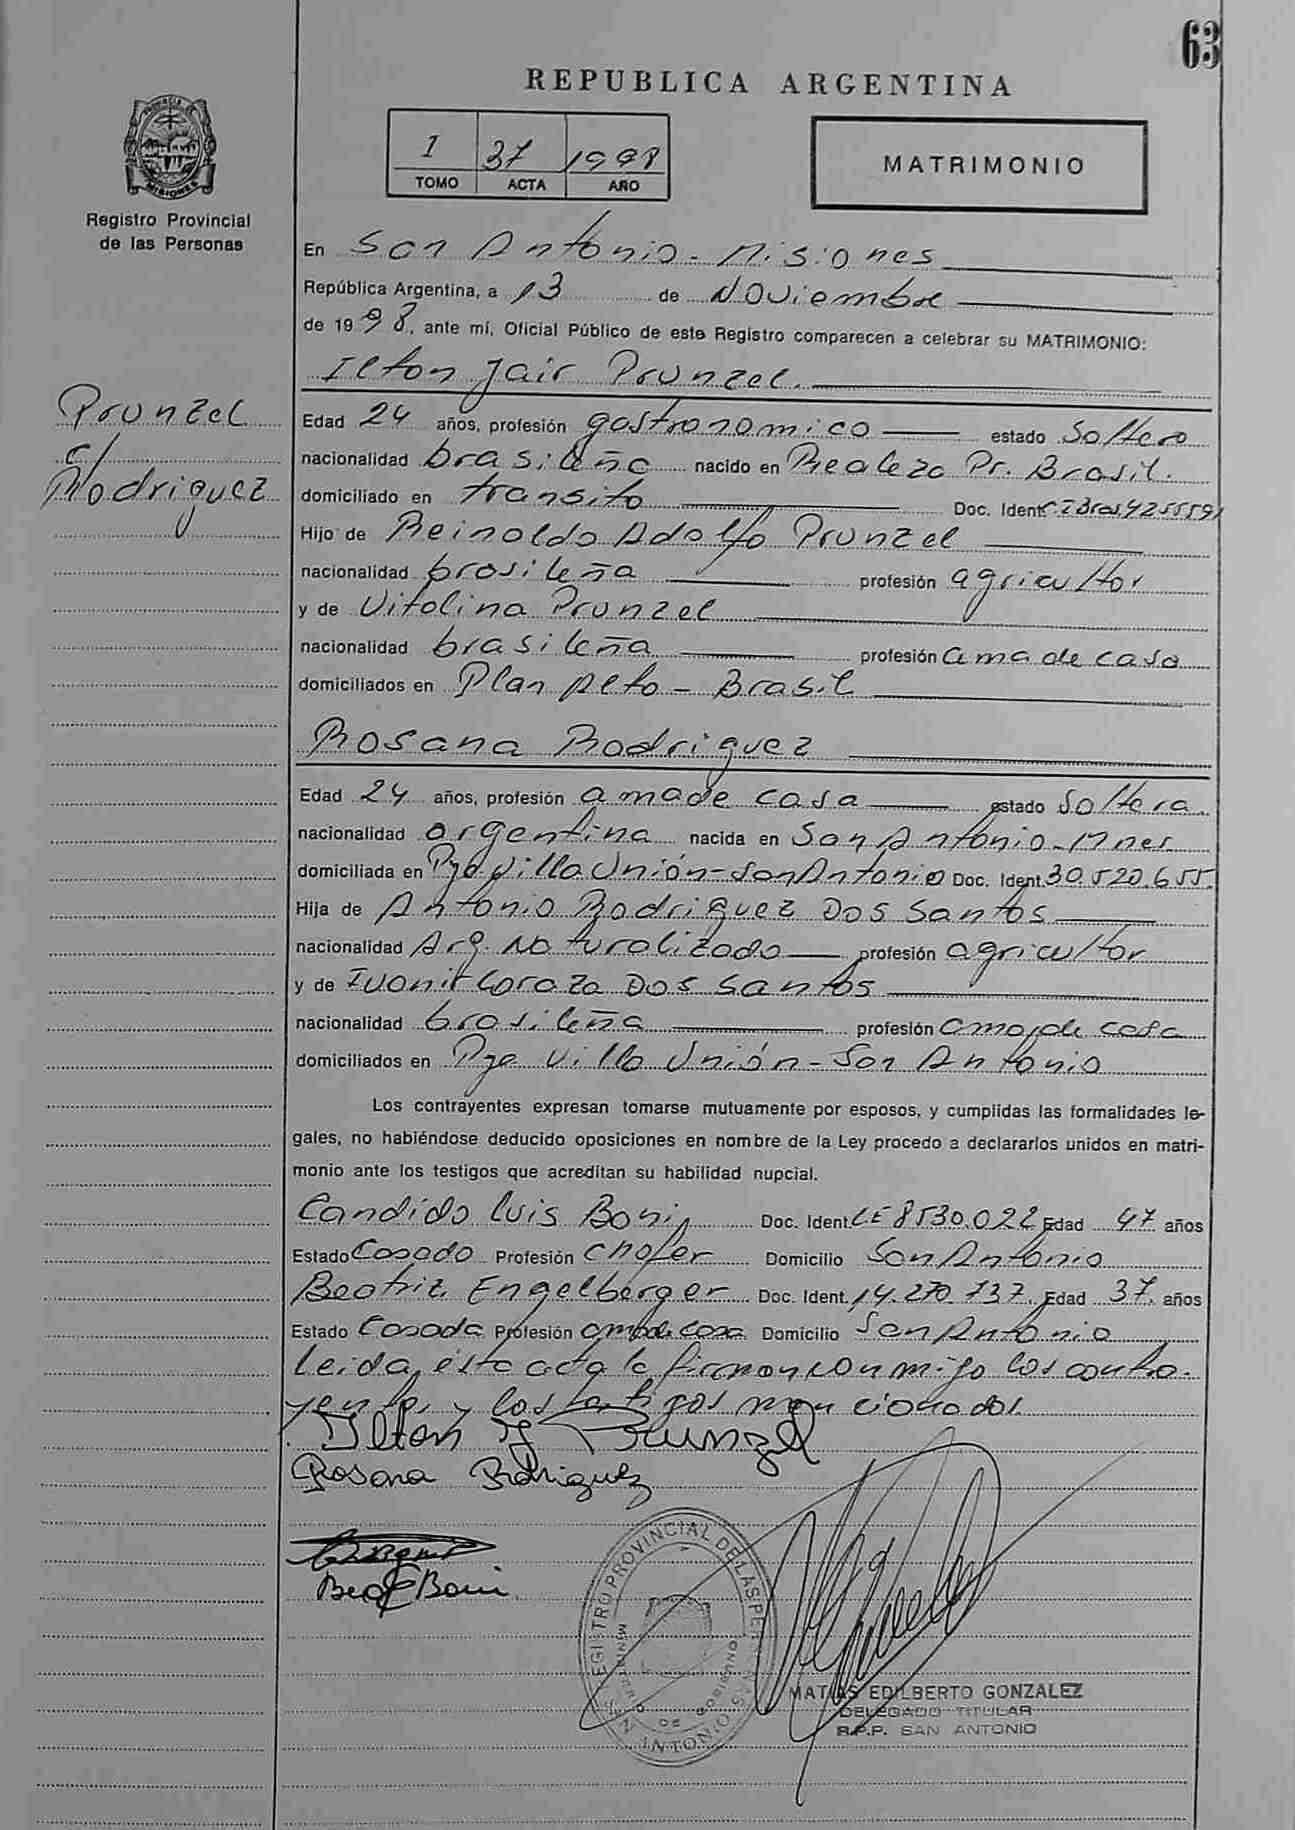 63
REPUBLICA ARGENTINA
PROVINCIA DE
MISIONES
Registro Provincial
de las Personas
1 37 1998
TOMO ACTA AÑO
MATRIMONIO
En San Antonio - Misiones
República Argentina, a 13 de Noviembre
de 1998, ante mí, Oficial Público de este Registro comparecen a celebrar su MATRIMONIO:
Ilton Jair Prunzel.
Prunzel
c/
Rodriguez
Edad 24 años, profesión gastronomico estado Soltero
nacionalidad brasileña nacido en Realeza Pr. Brasil.
domiciliado en transito Doc. Ident. CI Bras. 4255591
Hijo de Reinoldo Adolfo Prunzel
nacionalidad brasileña profesión agricultor
y de Vitolina Prunzel
nacionalidad brasileña profesión ama de casa
domiciliados en Plan Alto - Brasil
Rosana Rodriguez
Edad 24 años, profesión ama de casa estado Soltera.
nacionalidad argentina nacida en San Antonio - Mnes
domiciliada en Pje Villa Unión - San Antonio Doc. Ident. 30.520.655.
Hija de Antonio Rodriguez Dos Santos
nacionalidad Arg. Naturalizado profesión agricultor
y de Ivonit Coraza Dos Santos
nacionalidad brasileña profesión ama de casa
domiciliados en Pje Villa Unión - San Antonio
Los contrayentes expresan tomarse mutuamente por esposos, y cumplidas las formalidades le-
gales, no habiéndose deducido oposiciones en nombre de la Ley procedo a declararlos unidos en matri-
monio ante los testigos que acreditan su habilidad nupcial.
Candido Luis Boni, Doc. Ident. LE 8530.022 Edad 47 años
Estado Casado Profesión Chofer Domicilio San Antonio
Beatriz Engelberger Doc. Ident. 14.270.737. Edad 37. años
Estado Casada Profesión ama de casa Domicilio San Antonio
Leida, ésta acta la firman conmigo los contra-
yentes y los testigos mencionados.
Ilton J Prunzel
Rosana Rodriguez
Bea E Boni
REGISTRO PROVINCIAL DE LAS PERSONAS
MINISTERIO DE GOBIERNO
SAN ANTONIO
MATIAS EDILBERTO GONZALEZ
DELEGADO TITULAR
R.P.P. SAN ANTONIO